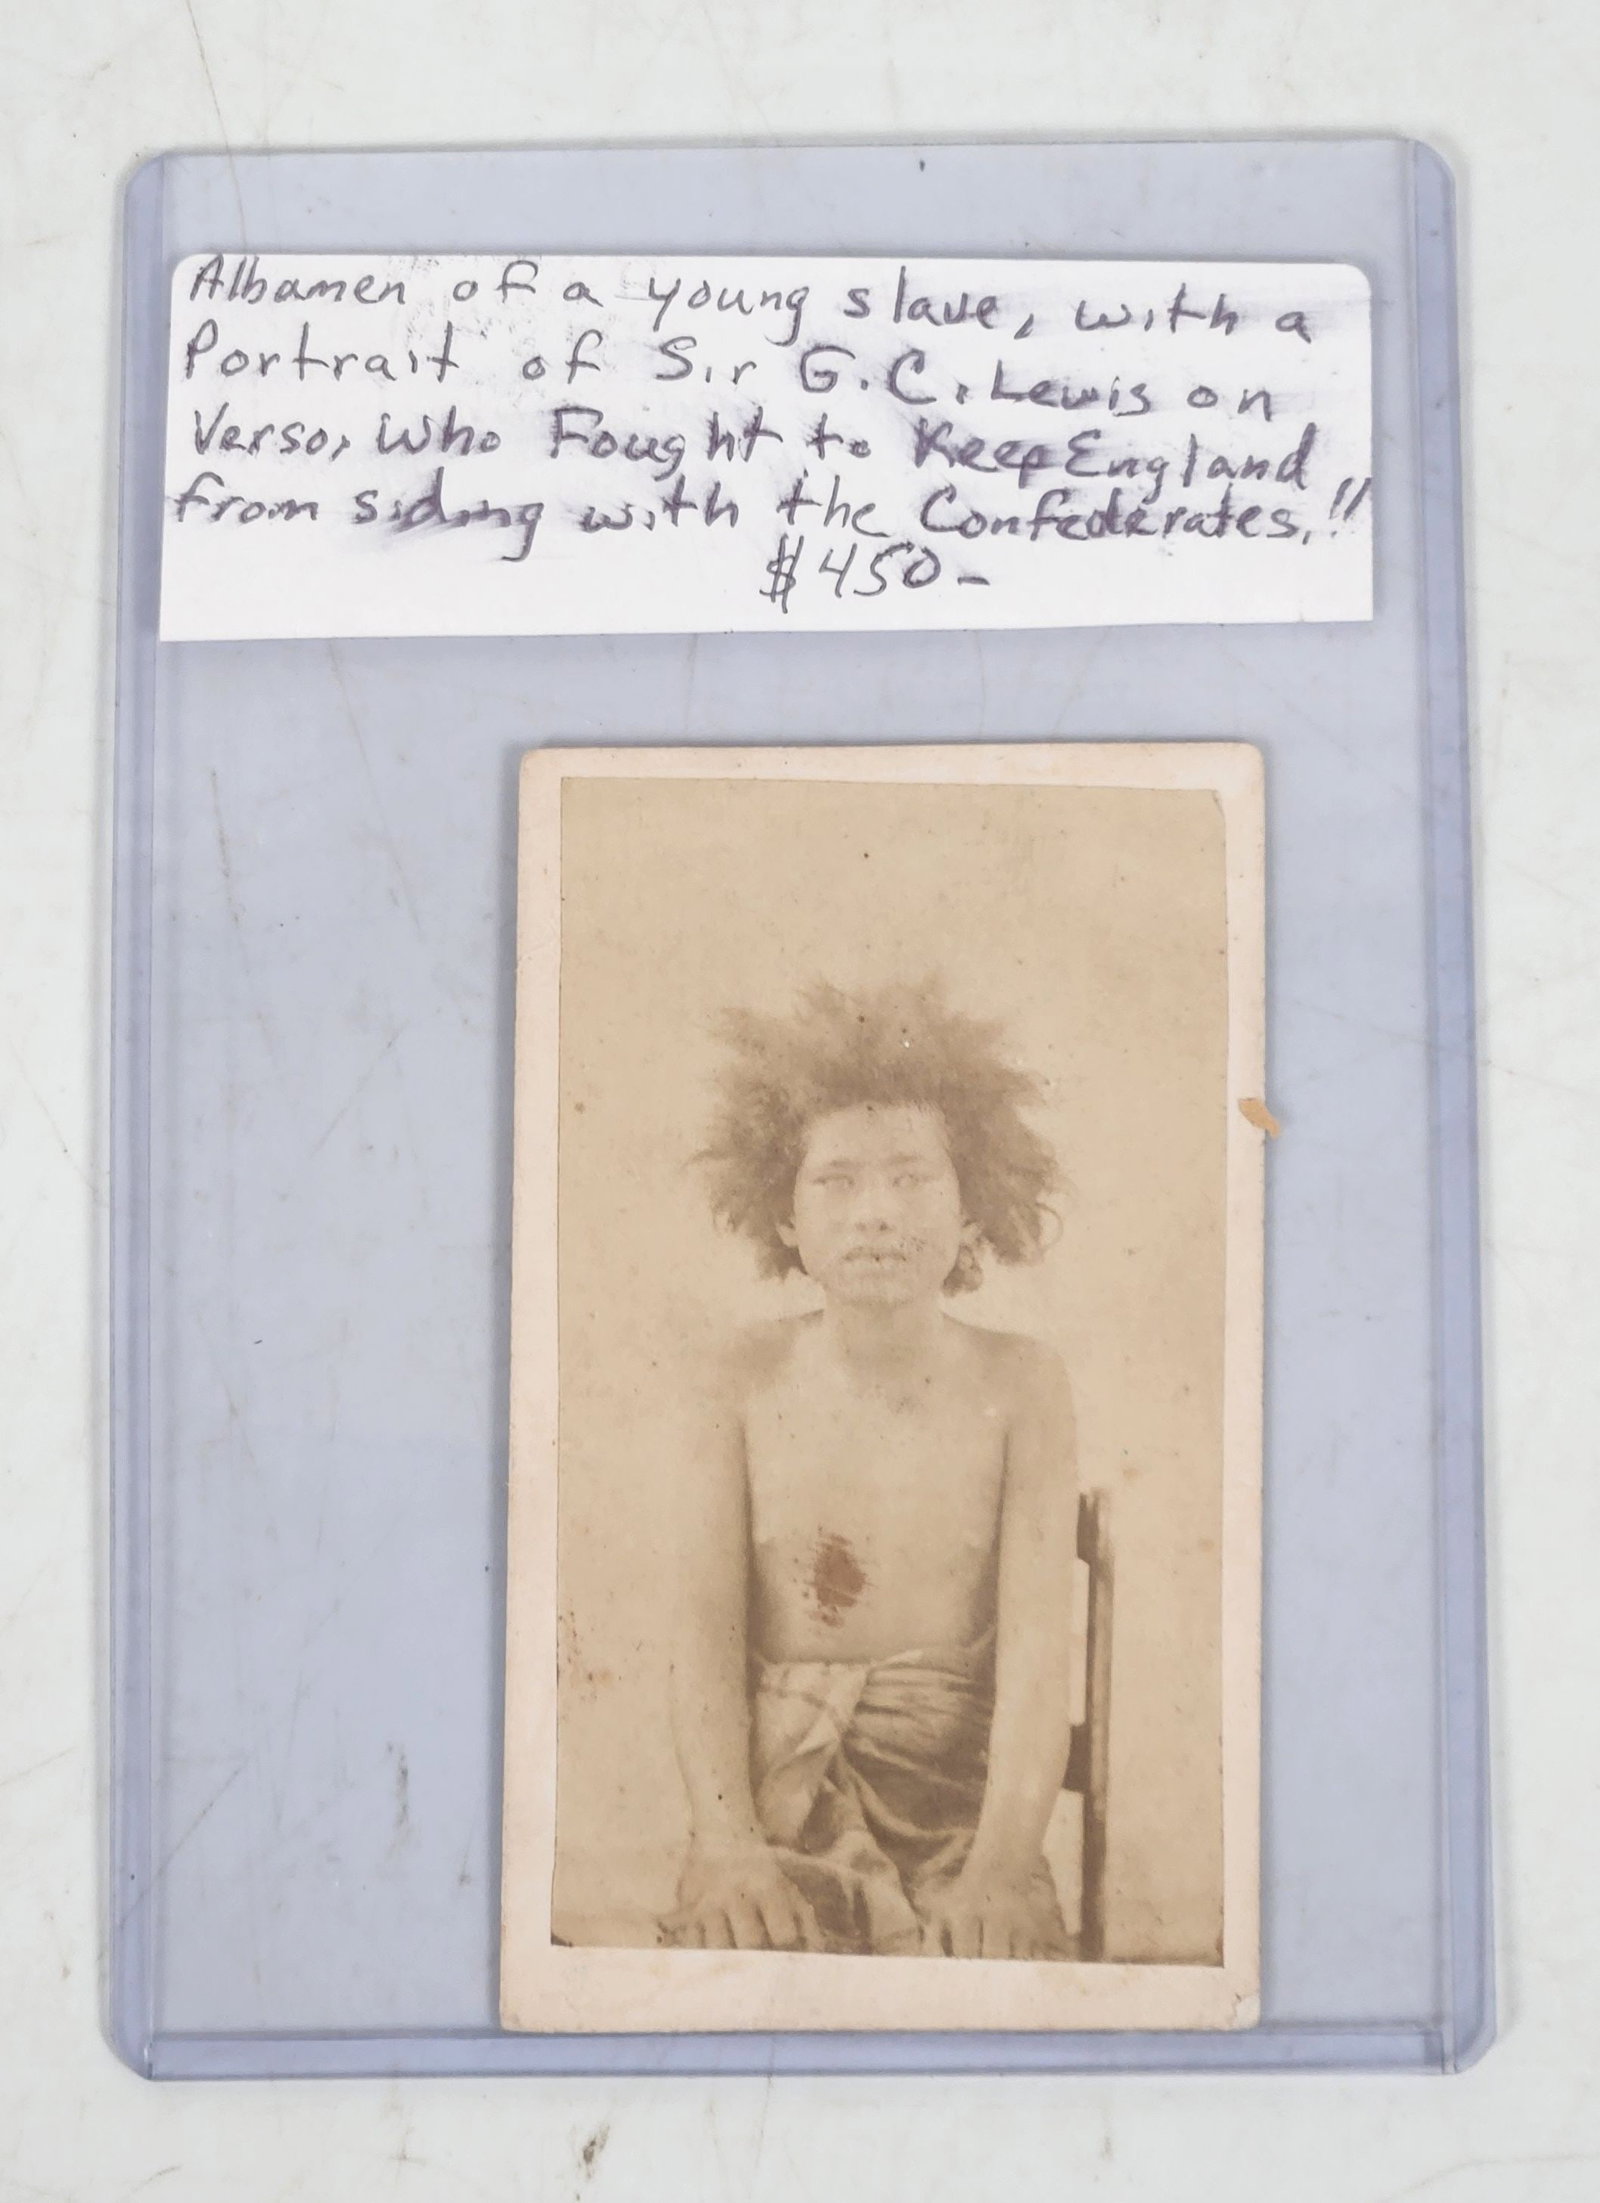 Albamen of a young slave, with a
Portrait of Sir G.C. Lewis on
Verso, Who Fought to Keep England
from siding with the Confederates.!!
$450-